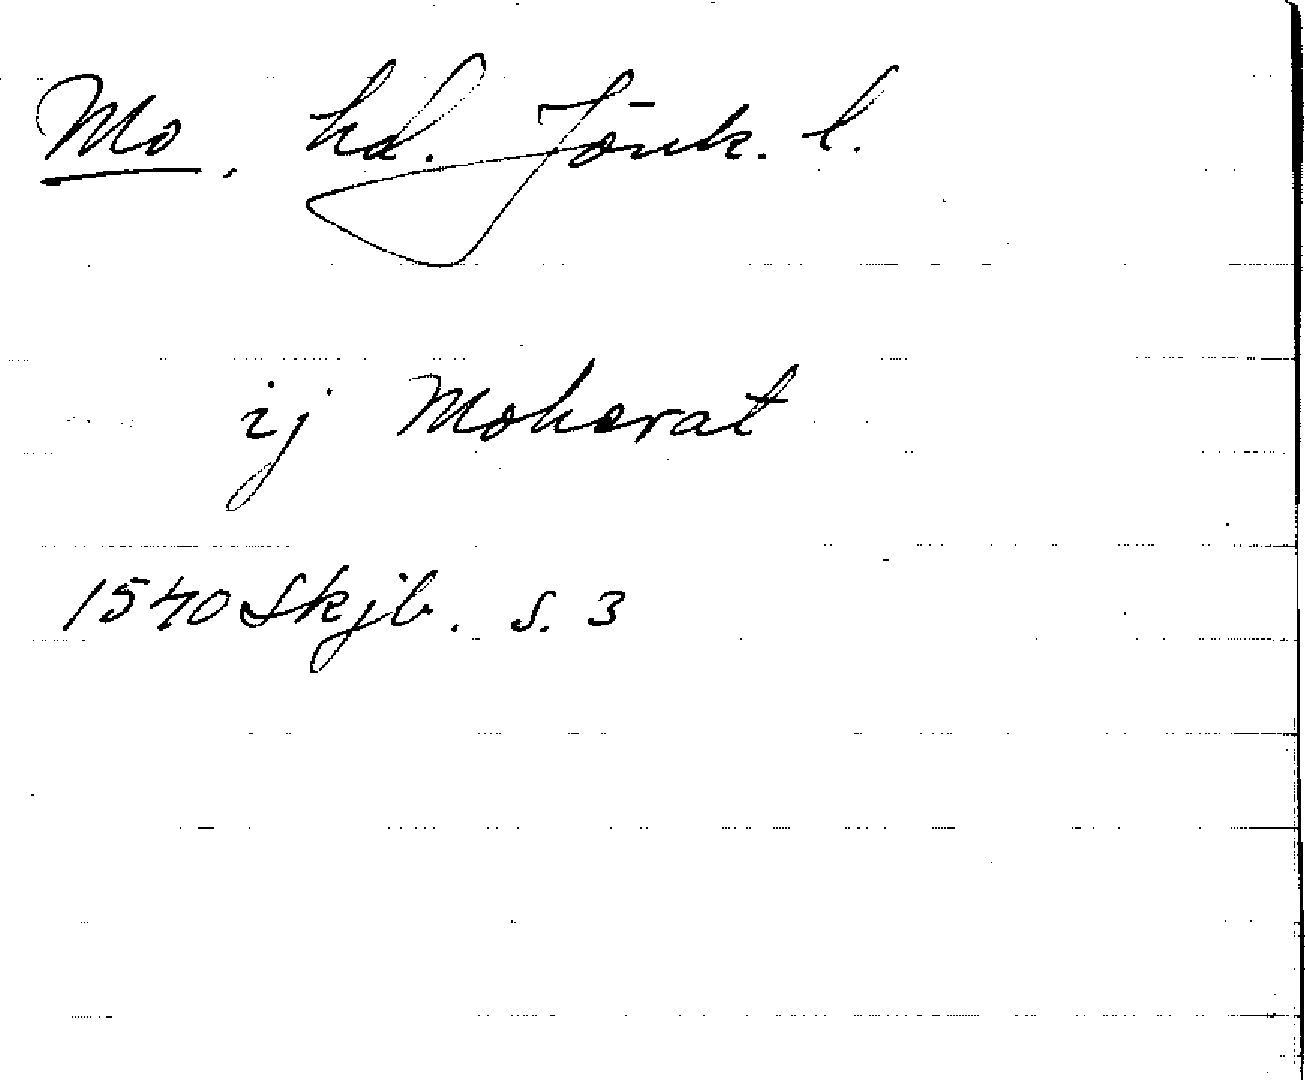 Mo, hd. Jönk. l.
ij Moherat
1540 Skjb. s. 3